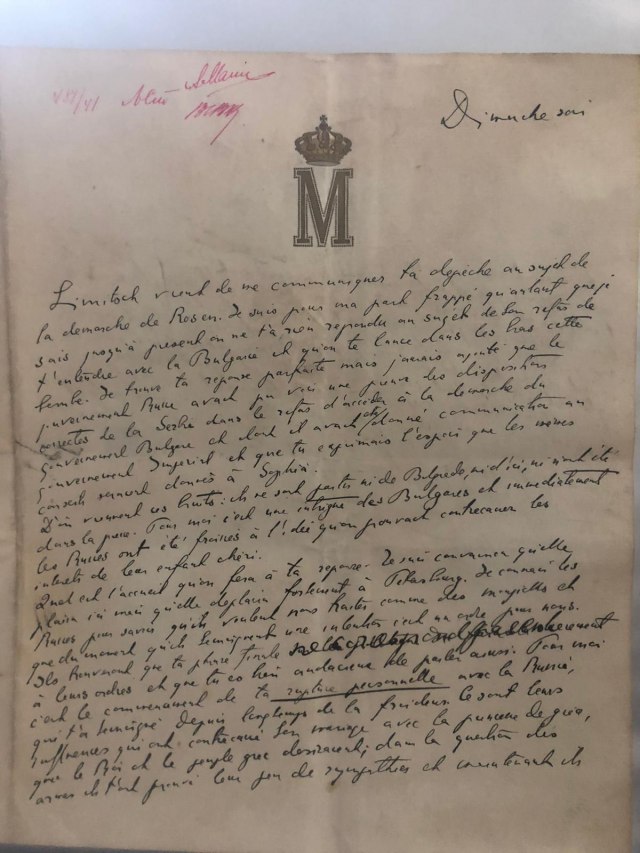 Dimanche soir
M
vient de me communiquer ta dépêche au sujet de
la démarche de Rosen. Je suis pour ma part frappé qu'autant que je
sais jusqu'à présent on ne t'a rien répondu au sujet de ton refus de
t'entendre avec la Bulgarie et qu'on te lance dans les bras cette
bombe. Je trouve ta réponse parfaite mais j'aurais ajouté que le
gouvernement Russe avait pu voir une preuve des dispositions
correctes de la Serbie dans le refus d'accéder à la démarche du
Gouvernement Bulgare et dont il avait été donné communication au
Gouvernement Impérial et que tu exprimais l'espoir que les mêmes
conseils seraient donnés à Sophia.
D'où viennent ces bruits: ils ne sont partis ni de Belgrade, ni d'ici, ni n'ont été
dans la presse. Pour moi c'est une intrigue des Bulgares et immédiatement
les Russes ont été froissés à l'idée qu'on pouvait contrecarrer les
intérêts de leur enfant chéri.
Quel est l'accueil qu'on fera à ta réponse. Je suis convaincu qu'elle
plaira ici mais qu'elle déplaira fortement à Petersburg. Je connais les
Russes pour savoir qu'ils veulent nous traiter comme des
que du moment qu'ils témoignent une intention c'est un ordre pour nous.
Ils trouveront que ta phrase finale
à leurs ordres et que tu es bien audacieux de parler ainsi. Pour moi
c'est le commencement de ta rupture personnelle avec la Russie,
qui t'a témoigné depuis longtemps de la froideur. Ce sont leurs
influences qui ont contrecarré ton mariage avec la princesse de Grèce,
que le Roi et le peuple grec désiraient; dans la question des
armes ils t'ont prouvé leur peu de sympathies et maintenant ils